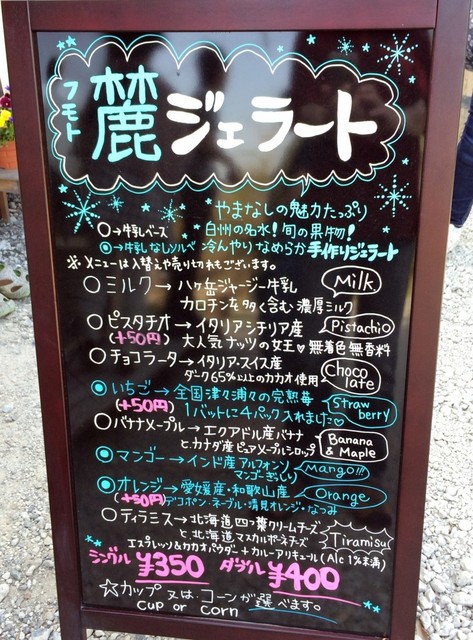 フモト
麓ジェラート
やまなしの魅力たっぷり
○→牛乳ベース 白州の名水!旬の果物!
◉→牛乳なしソルベ ひんやりなめらか手作りジェラート
※メニューは入替えや売り切れもございます。
○ミルク→八ヶ岳ジャージー牛乳 Milk
カロチンを多く含む濃厚ミルク
○ピスタチオ→イタリアシチリア産 Pistachio
(+50円) 大人気ナッツの女王♡無着色無香料
○チョコラータ→イタリア・スイス産 Choco
ダーク65%以上のカカオ使用 late
◉いちご→全国津々浦々の完熟苺 Straw
(+50円) 1バットに4パック入れました♡ berry
○バナナメープル→エクアドル産バナナ Banana
とカナダ産ピュアメープルシロップ & Maple
◉マンゴー→インド産アルフォンソ Mango!!!
マンゴーぎっしり
◉オレンジ→愛媛産・和歌山産 Orange
(+50円) デコポン・ネーブル・清見オレンジ・なつみ
○ティラミス→北海道四つ葉クリームチーズ
と北海道マスカルポーネチーズ Tiramisu
エスプレッソ&カカオパウダー+カルーアリキュール(Alc1%未満)
シングル ¥350 ダブル ¥400
☆カップ又はコーンが選べます。
cup or corn